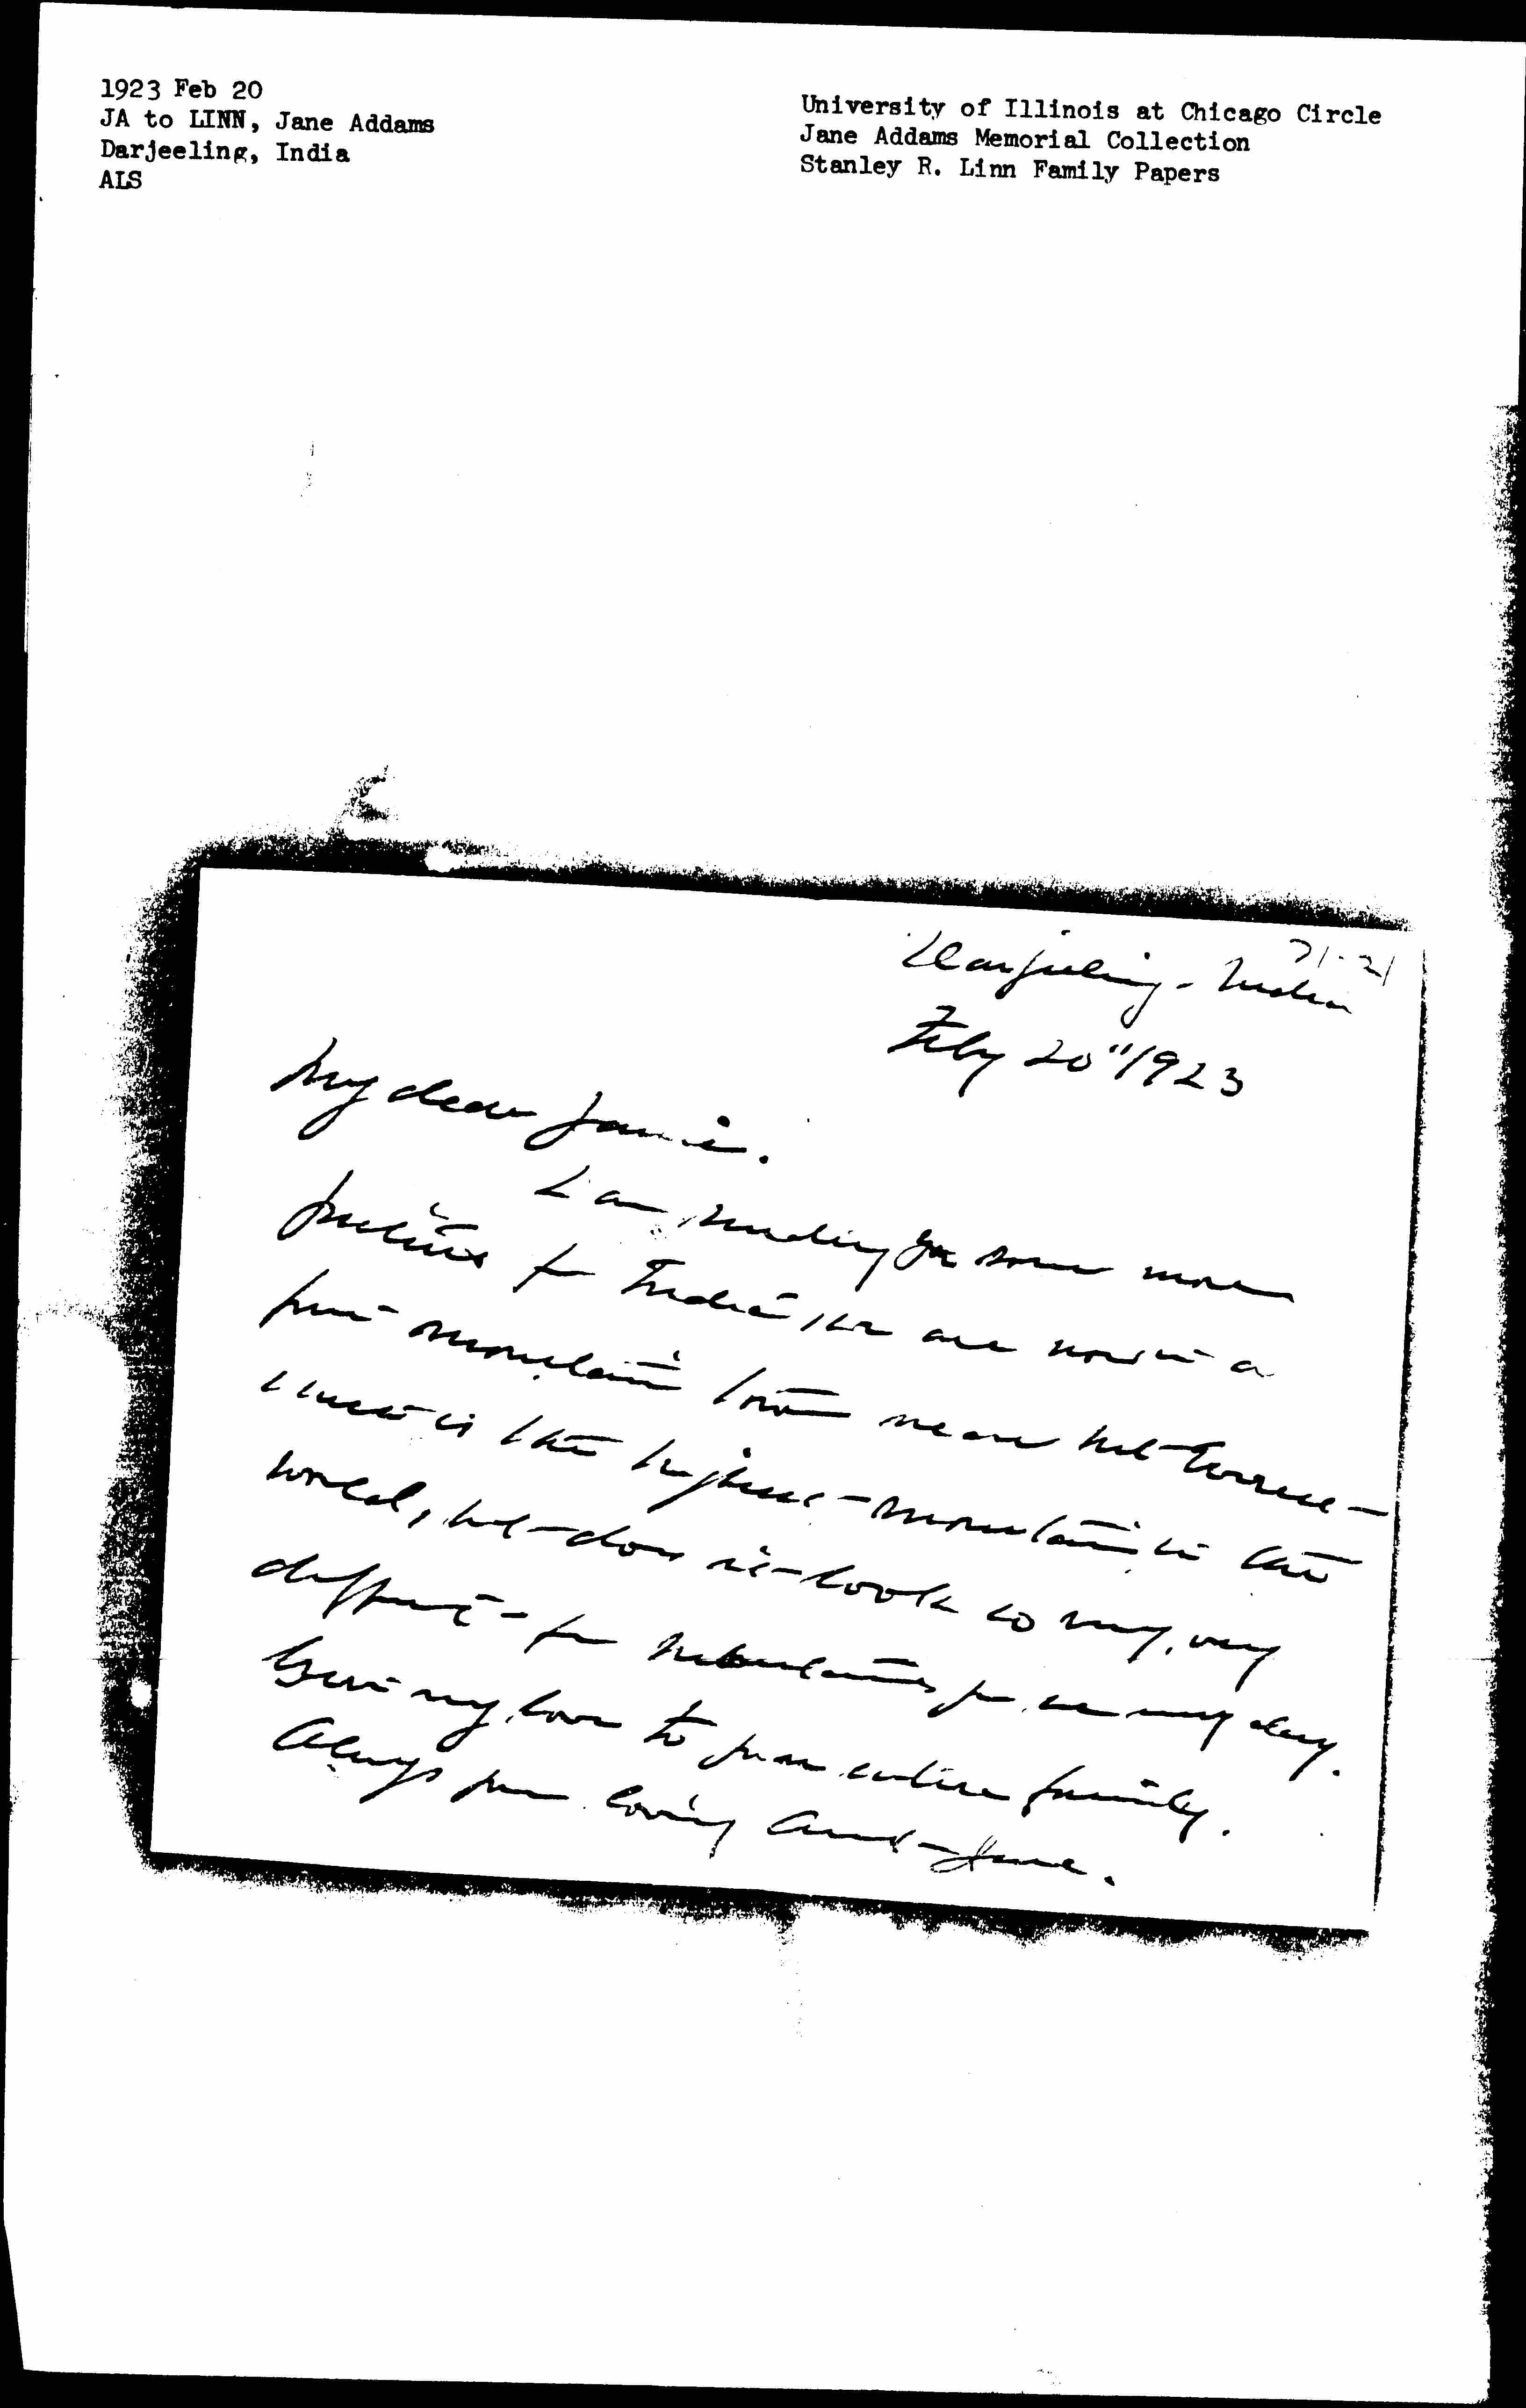 1923 Feb 20
JA to LINN, Jane Addams
Darjeeling, India
ALS
University of Illinois at Chicago Circle
Jane Addams Memorial Collection
Stanley R. Linn Family Papers
71-21
Darjeeling - India
Feby 20" 1923
My dear Jane.
I am sending you some more
pictures from India, we are now in a
mountain town near Mt Everest
which is the highest mountain in the
world, but does not look so very, very
different from mountains you see any day.
Give my love to your entire family.
Always your loving Aunt Jane.